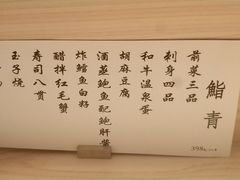 鮨青
前菜三品
刺身四品
和牛温泉蛋
胡麻豆腐
酒蒸鮑魚配鮑肝醬
炸鱈魚白籽
醋拌红毛蟹
寿司八贯
玉子燒
398元